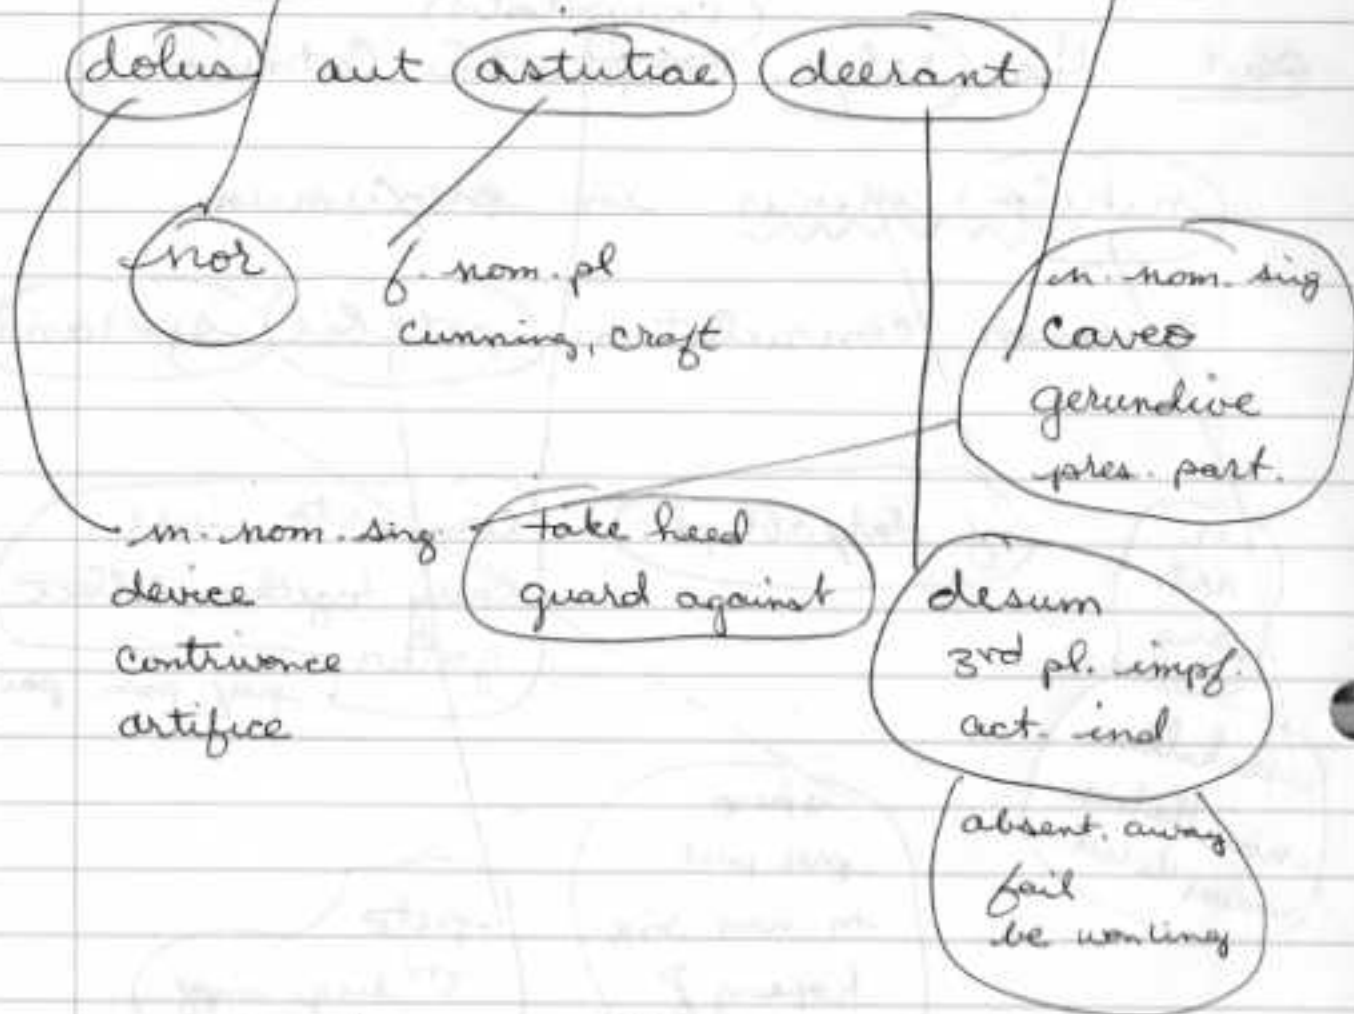 dolus aut astutiae deerant
nor
f. nom. pl
cunning, craft
n. nom. sing
caveo
gerundive
pres. part.
m. nom. sing.
device
contrivance
artifice
take heed
guard against
desum
3rd pl. impf.
act. ind
absent, away
fail
be wanting